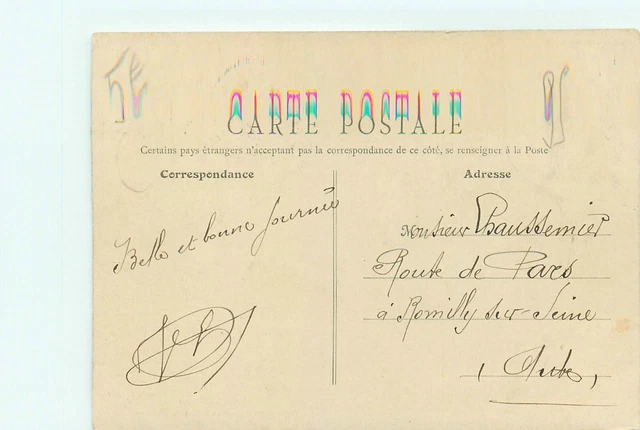 5E
CARTE POSTALE
Certains pays étrangers n'acceptant pas la correspondance de ce côté, se renseigner à la Poste
Correspondance
Belle et bonne journée
Adresse
Monsieur Chaussemier
Route de Paris
à Romilly sur-Seine
(Aube)